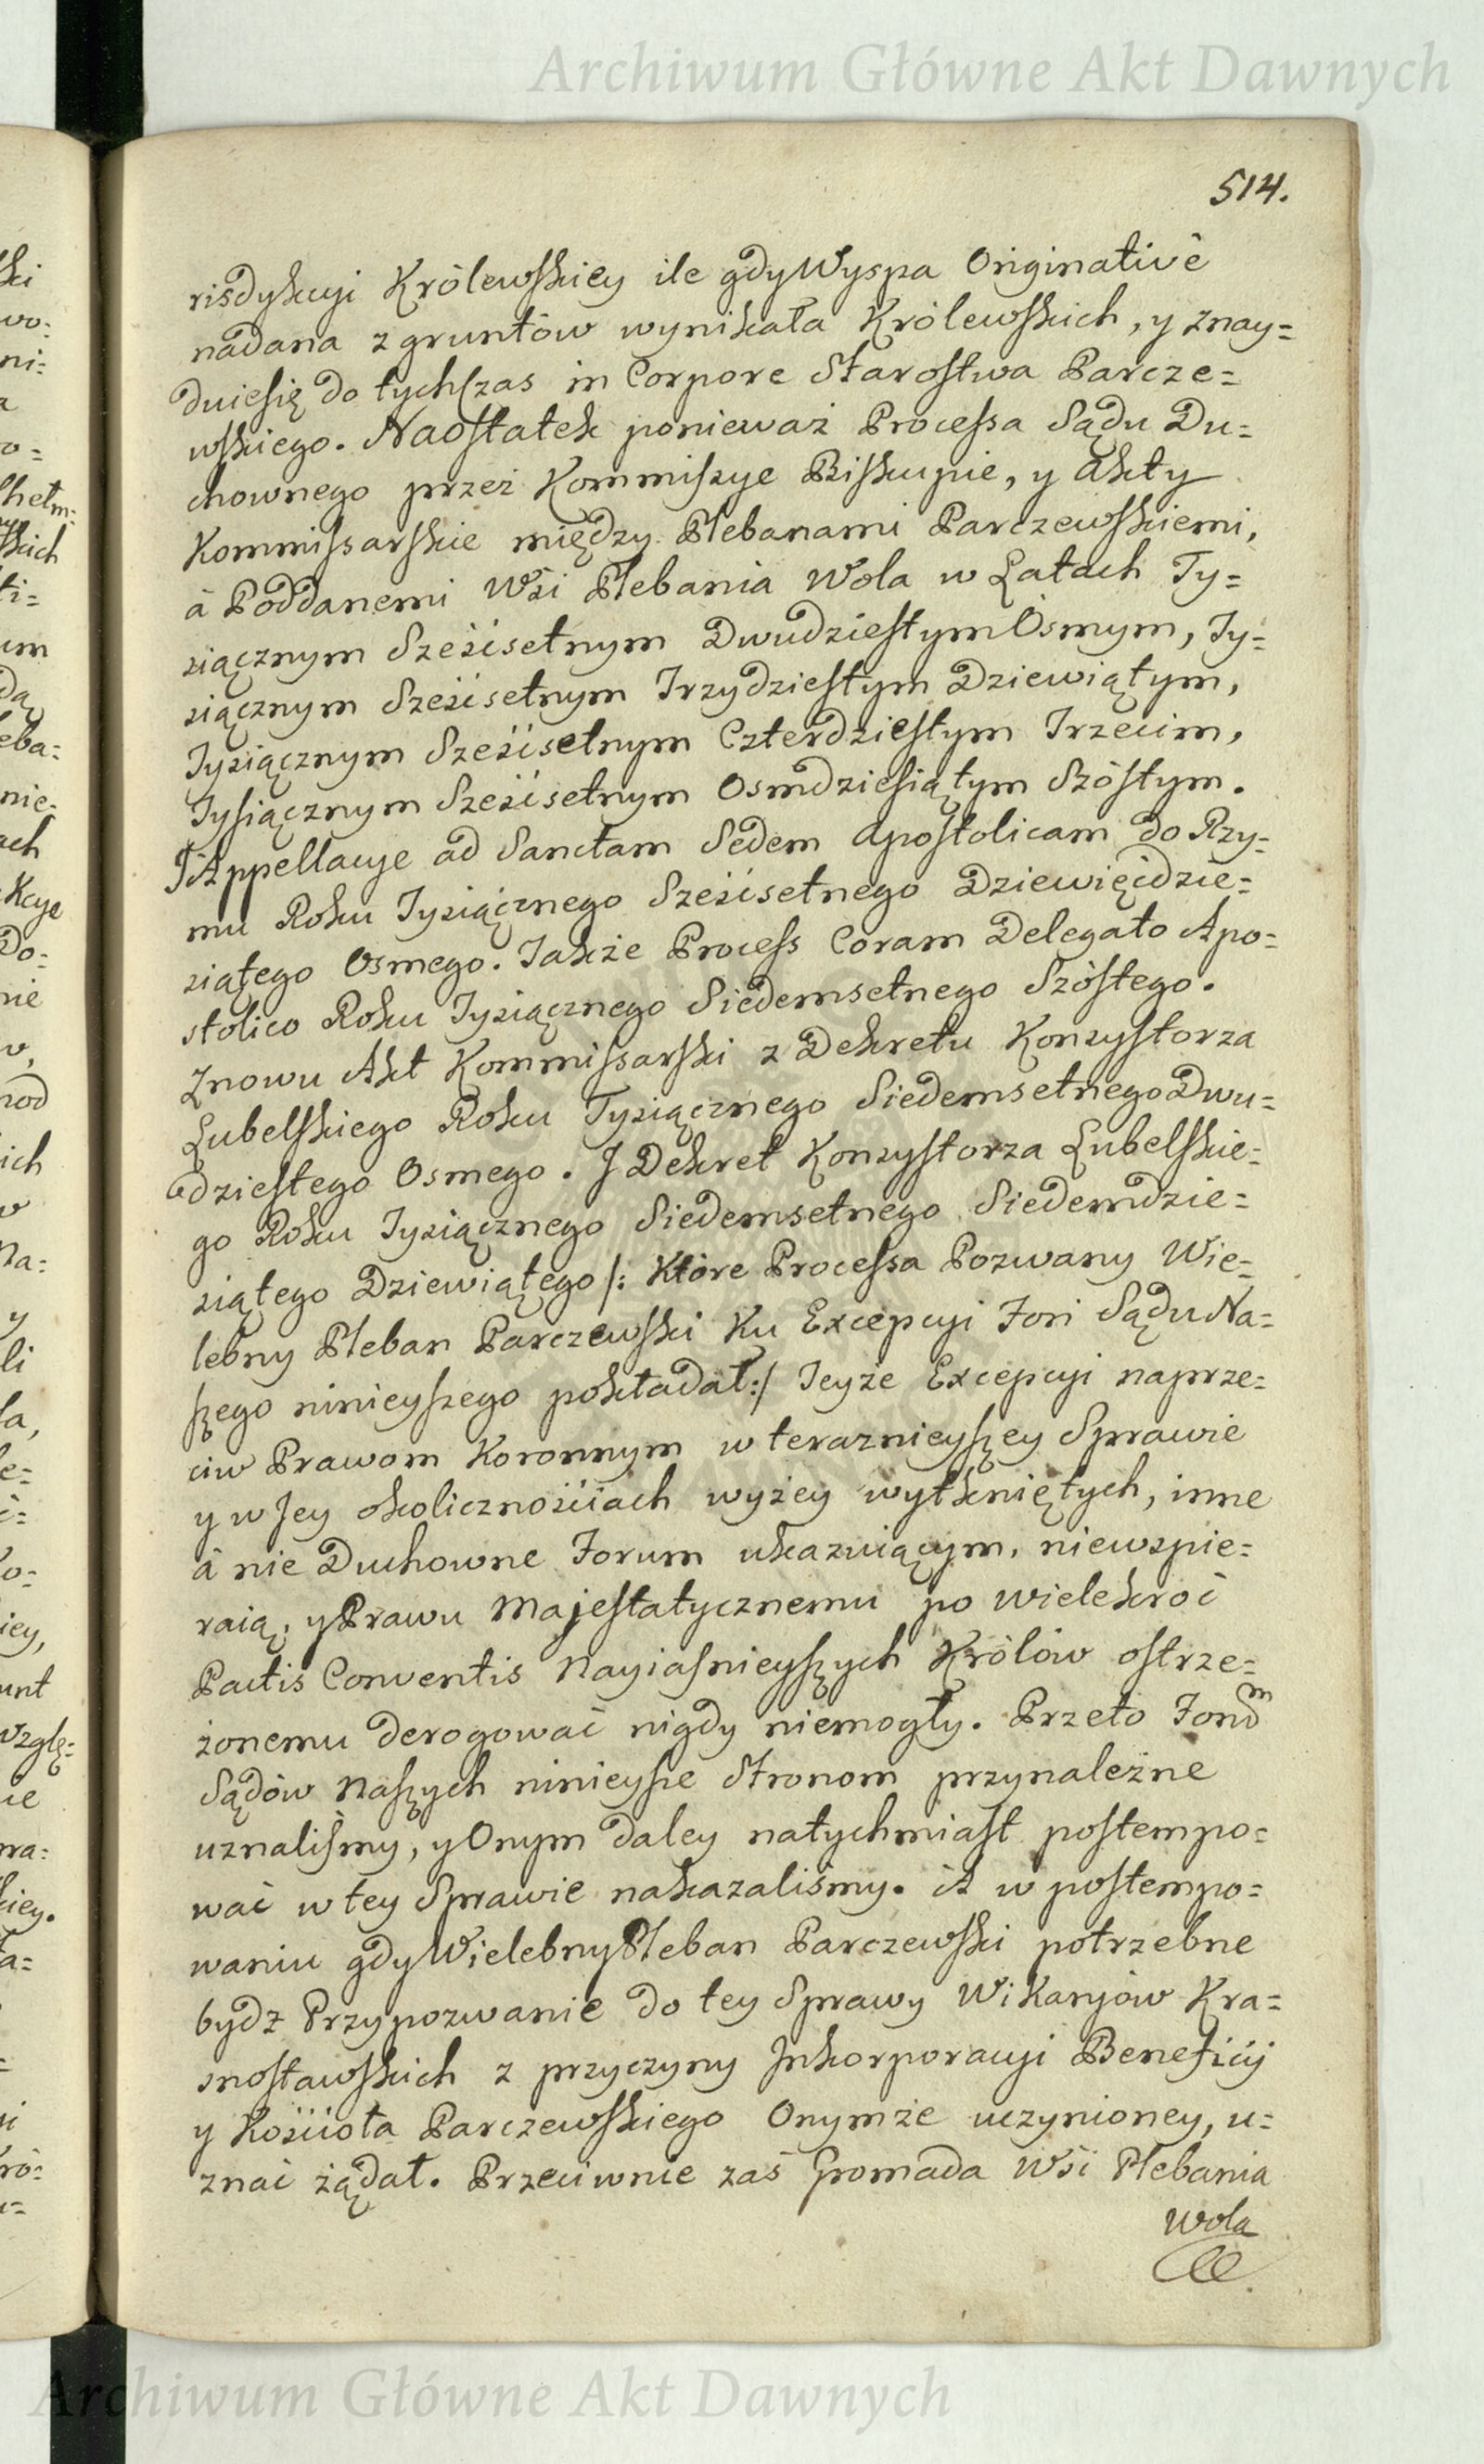 Archiwum Główne Akt Dawnych
514.
risdykcyi Królewskiey ile gdy Wyspa Originativè
nadana z gruntów wynikała Królewskich, y znay=
duie się do tychczas in Corpore Starostwa Parcze=
wskiego. Naostatek ponieważ Processa Sądu Du=
chownego przez Kommiszye Biskupie, y Akty
Kommissarskie między Plebanami Parczewskiemi,
à Poddanemi Wsi Plebania Wola w Latach Ty=
siącznym Sześćsetnym Dwudziestym Osmym, Ty=
siącznym Sześćsetnym Trzydziestym Dziewiątym,
Tysiącznym Sześćsetnym Czterdziestym Trzecim,
Tysiącznym Sześćsetnym Osmdziesiątym Szóstym.
J Appellacye ad Sanctam Sedem Apostolicam do Rzy=
mu Roku Tysiącznego Sześćsetnego Dziewięćdzie=
siątego Osmego. Takze Process Coram Delegato Apo=
stolico Roku Tysiącznego Siedemsetnego Szóstego.
Znowu Akt Kommissarski z Dekretu Konsystorza
Lubelskiego Roku Tysiącznego Siedemsetnego Dwu=
dziestego Osmego. J Dekret Konsystorza Lubelskie=
go Roku Tysiącznego Siedemsetnego Siedemdzie=
siątego Dziewiątego /: Które Processa Pozwany Wie=
lebny Pleban Parczewski Ku Excepcyi Fori Sądu Na=
szego ninieyszego pokładał :/ Teyże Excepcyi naprze=
ciw Prawom Koronnym w teraznieyszey Sprawie
y w Jey okolicznościach wyżey wytkniętych, inne
à nie Duchowne Forum ukazuiącym, niewspie=
raią, y Prawu Majestatycznemu po wielekroć
Pactis Conventis Nayiasnieyszych Królów ostrze=
żonemu derogować nigdy niemogły. Przeto Forum
Sądów Naszych ninieysze Stronom przynależne
uznaliśmy, y Onym daley natychmiast postempo=
wać w tey Sprawie nakazaliśmy. A w postempo=
waniu gdy Wielebny Pleban Parczewski potrzebne
bydź Przypozwanie do tey Sprawy Wikaryiów Kra=
snostawskich z przyczyny Jnkorporacyi Beneficij
y Kościoła Parczewskiego Onymże uczynioney, u=
znać żądał. Przeciwnie zaś Gromada Wsi Plebania
Wola
Archiwum Główne Akt Dawnych